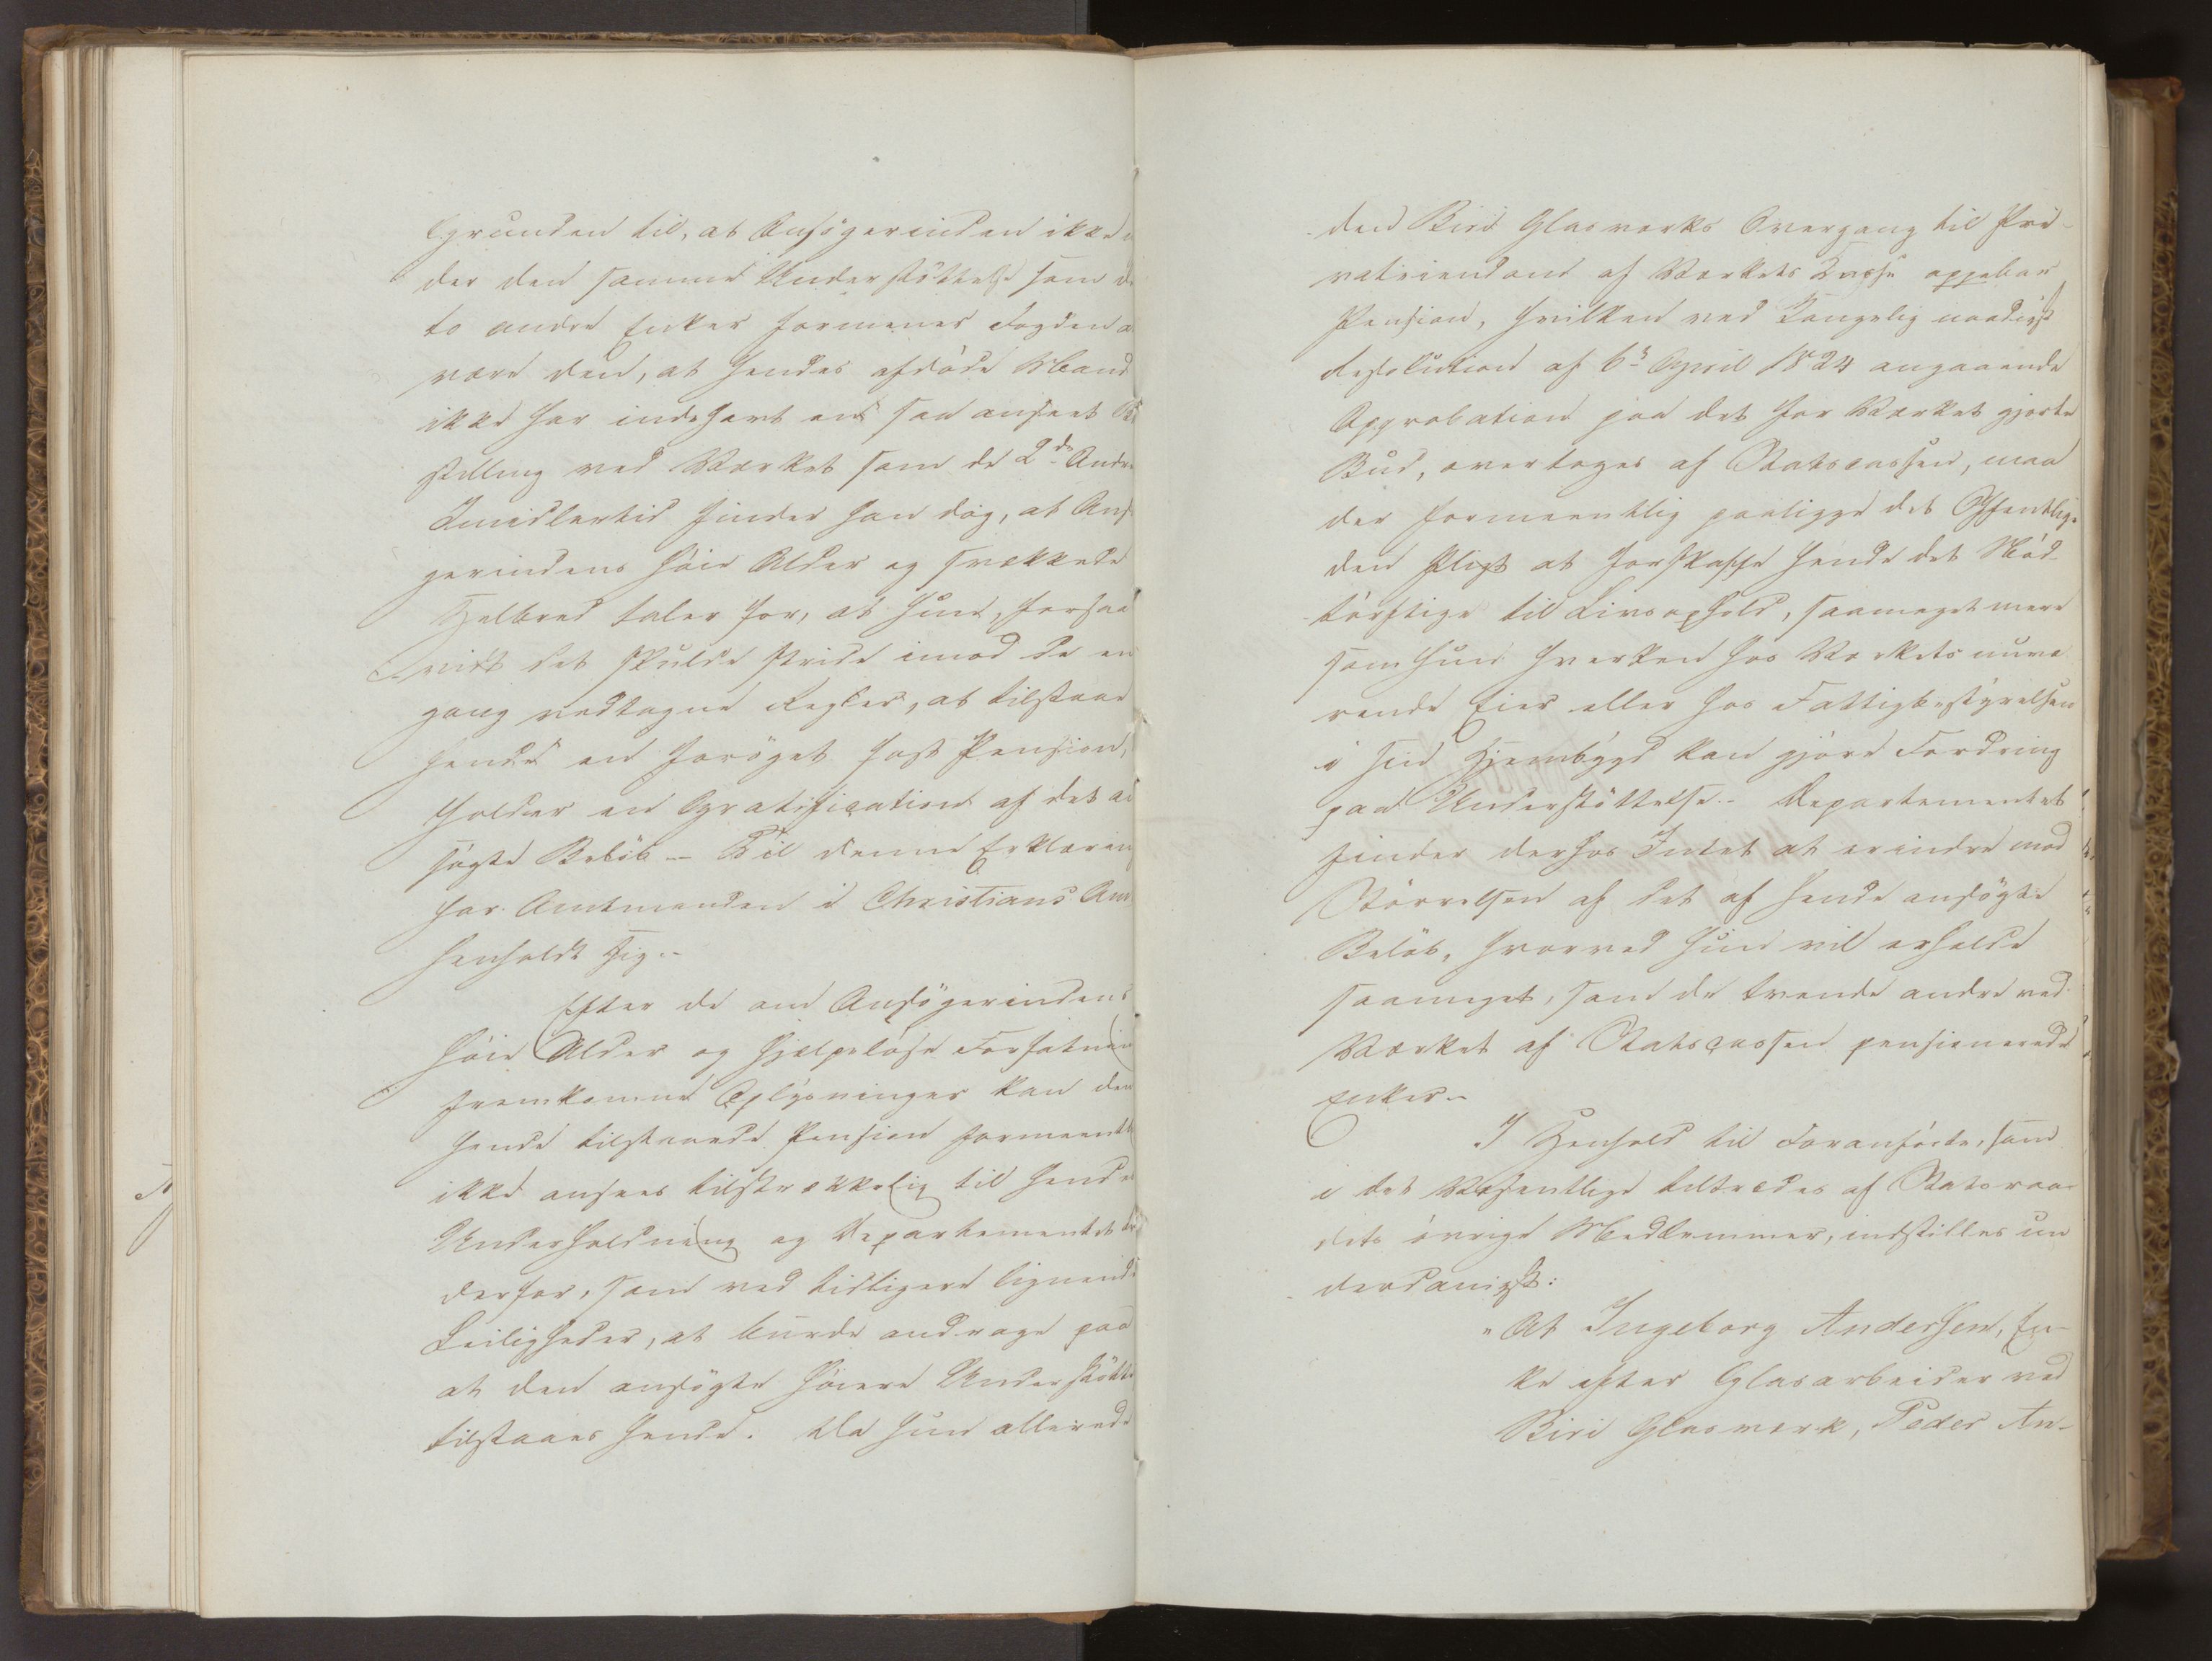 Grunden til, at Ansøgerinden ikke
der den samme Understøttelse som
to andre Enker formener Fogden
være den, at hendes afdøde Mand
ikke har indehavt en saa anseet
stilling ved Værket som de 2de Andre
Imidlertid finder han dog, at Ansø
gerindens høie Alder og svækkede
Helbred taler for, at hun, forsaa
vidt det skulde stride imod de en
gang vedtagne Regler, at tilstaae
hende en forøget fast Pension,
holder en Gratification af det an
søgte Beløb – Til denne Erklæring
har Amtmanden i Christians Amt
henholdt sig.–
Efter de om Ansøgerindens
høie Alder og hjælpeløse Forfatning
fremkomne Oplysninger kan den
hende tilstaaede Pension formeentlig
ikke ansees tilstrækkelig til hendes
Underholdning og Departementet
derfor, som ved tidligere lignende
Leiligheder, at burde andrage paa
at den ansøgte høiere Understøttelse
tilstaaes hende. Da hun allerede
den Biri Glasværks Overgang til Pri-
vateiendom af Værkets Casse oppebar
Pension, hvilken ved Kongelig naadigst
Resolution af 6te April 1824 angaaende
Approbation paa det for Værket gjorte
Bud, overtoges af Statscassen, maa
der formeentlig paaligge det Offentlige
den Pligt at forskaffe hende det Nød-
tørftige til Livsophold, saameget mere
som hun hverken hos Værkets nuvæ
rende Eier eller hos Fattigbestyrelsen
i sin Hjembygd kan gjøre Fordring
paa Understøttelse.– Departementet
finder derhos Intet at erindre mod
Størrelsen af det af hende ansøgte
Beløb, hvorved hun vil erholde
saameget, som de tvende andre ved
Værket af Statscassen pensionerede
Enker.–
I Henhold til Foranførte, som
i det Væsentlige tiltrædes af Statsraa-
dets øvrige Medlemmer, indstilles un
derdanigst:
"At Ingeborg Andersen, En-
ke efter Glasarbeider ved
Biri Glasværk, Peder An-